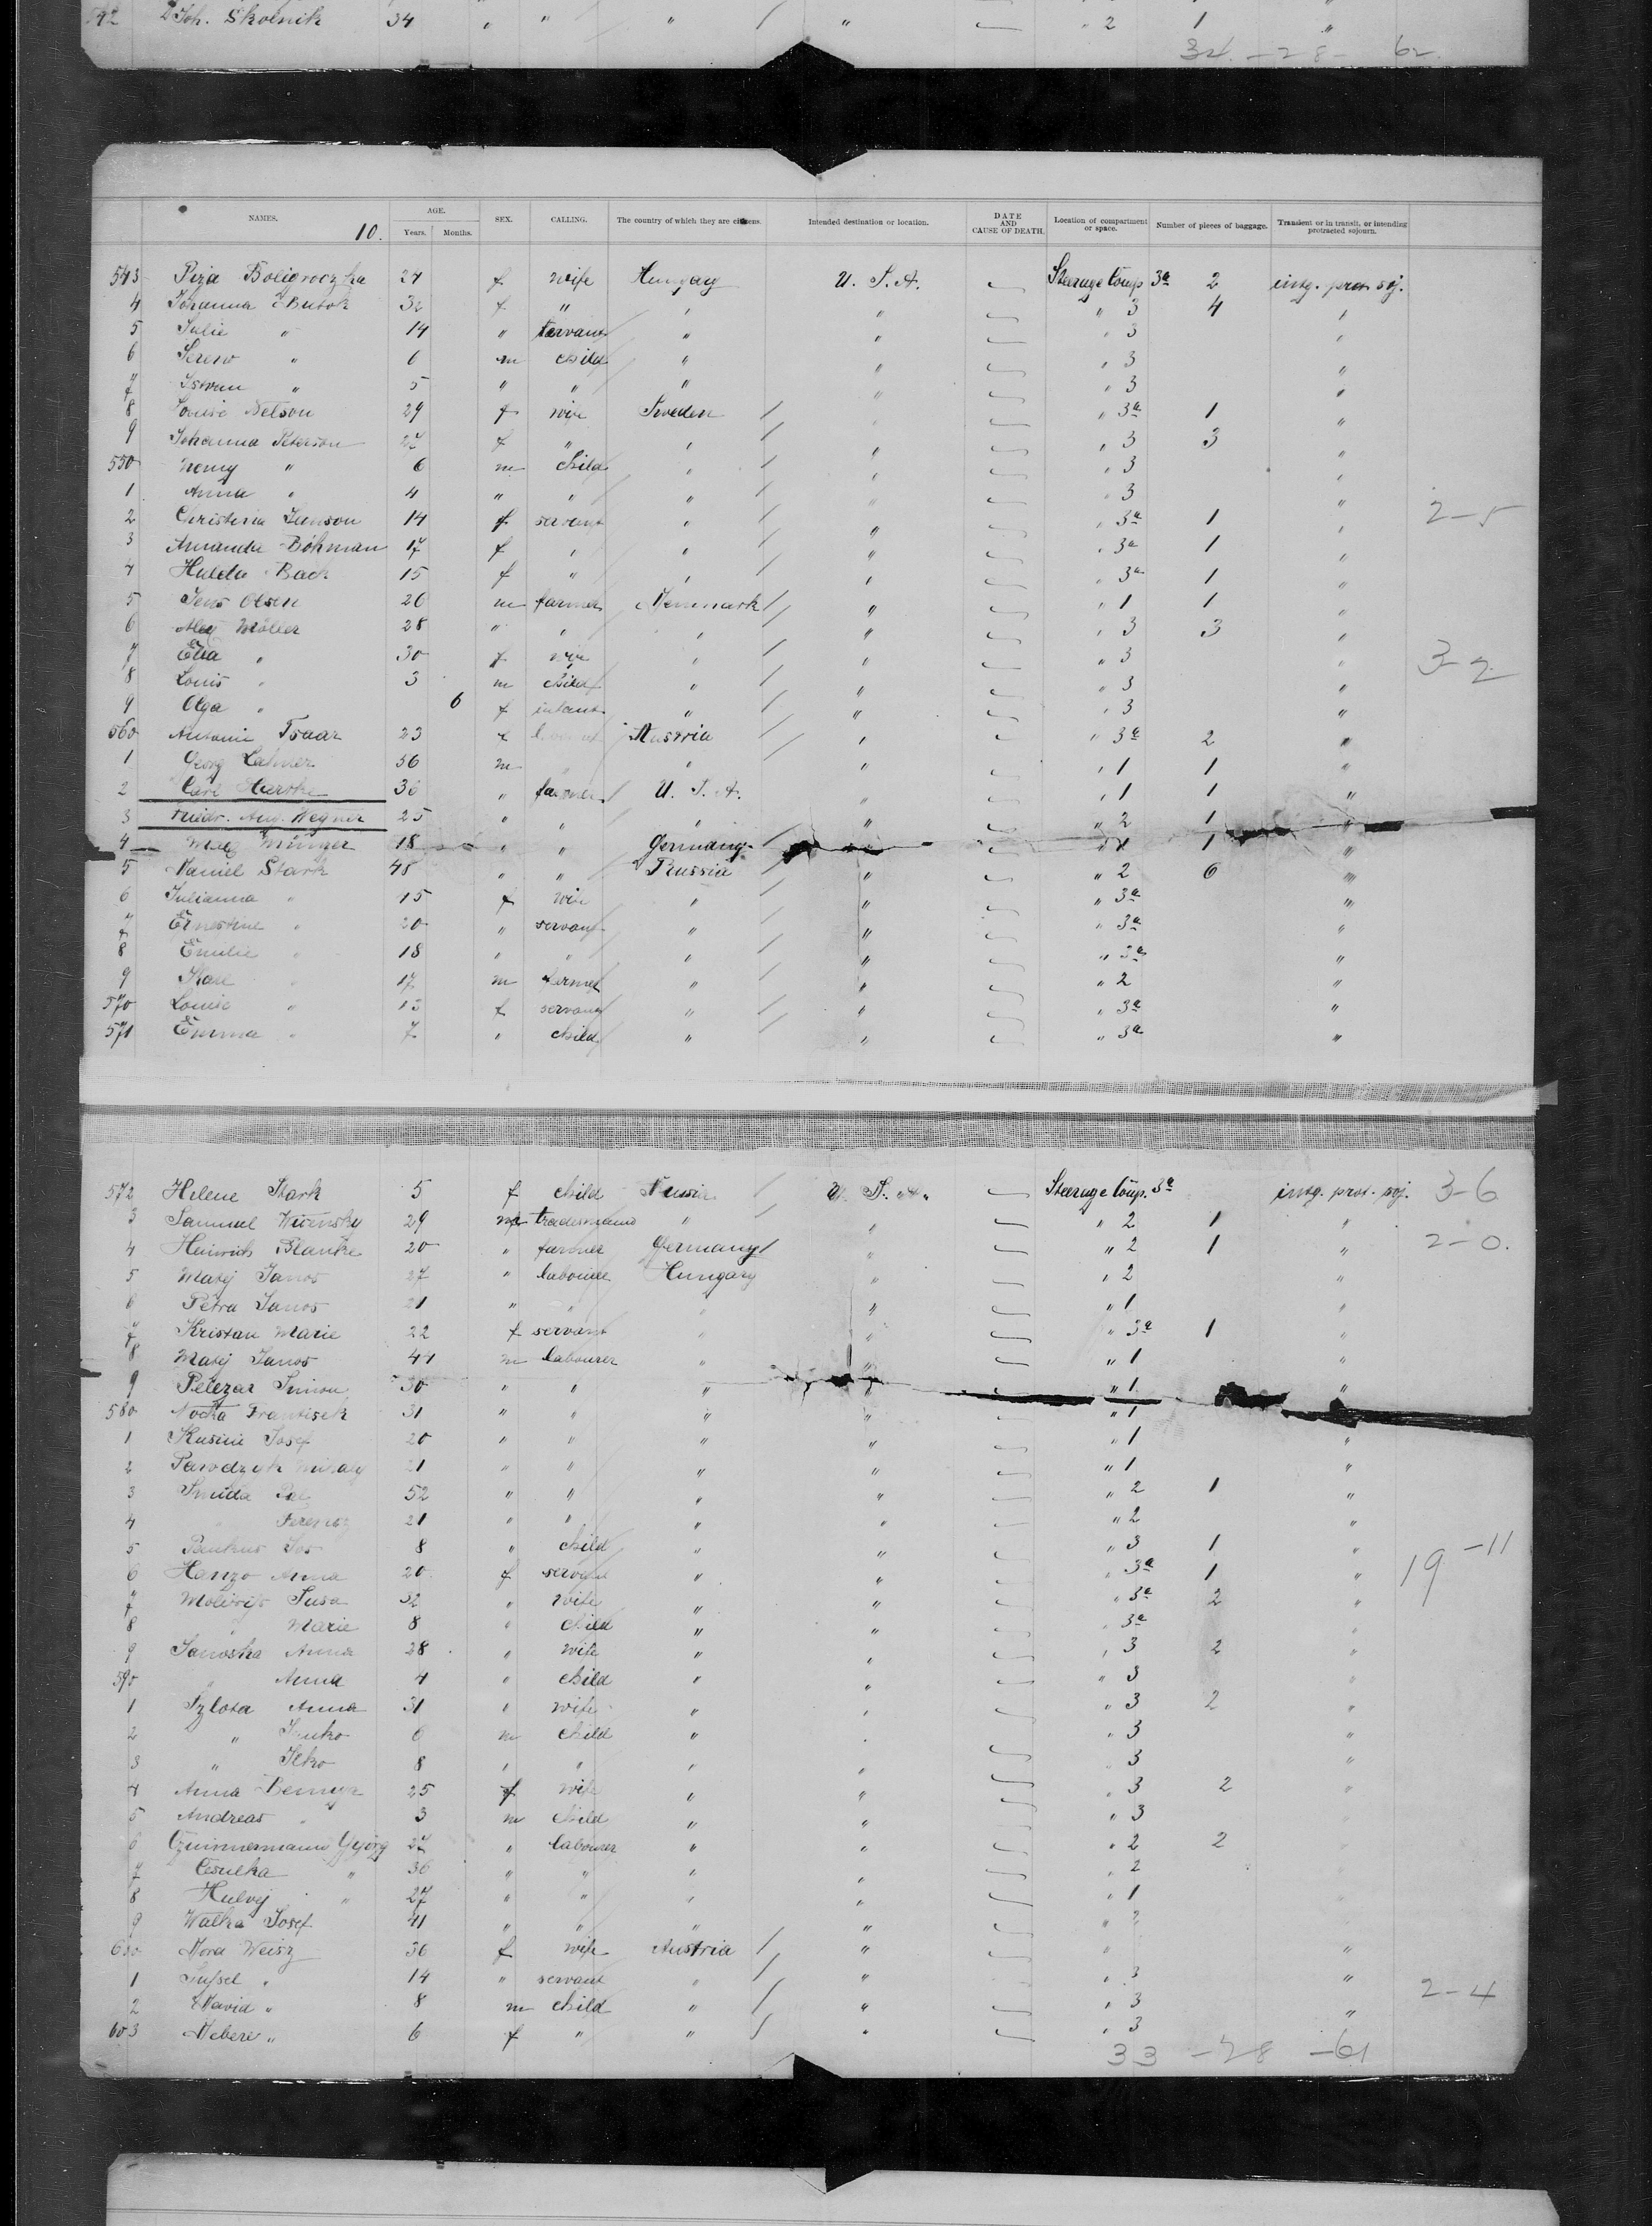 2 Joh. Skolnik 34 " " " " " 2 1 "
32 - 28 - 62
NAMES. 10. AGE. Years. Months. SEX. CALLING. The country of which they are citizens. Intended destination or location. DATE AND CAUSE OF DEATH. Location of compartment or space. Number of pieces of baggage. Transient or in transit, or intending protracted sojourn.
543 24 f wife Hungary U. S. A. Steerage Comp 3a 2 intg. prot. soj.
4 Johanna 32 f " " " " 3 4 "
5 Julie " 14 " servant " " " 3 "
6 " 6 m child " " " 3 "
7 Istvan " 5 " " " " " 3 "
8 Louise Nelson 29 f wife Sweden " " 3a 1 "
9 Johanna Peterson 27 f " " " " 3 3 "
550 Henry " 6 m child " " " 3 "
1 Anna " 4 " " " " " 3 "
2 Christina Jenson 14 f servant " " " 3a 1 " 2-5
3 Amanda Böhman 17 f " " " " 3a 1 "
4 Hulda Back 15 f " " " " 3a 1 "
5 Jens Olsen 26 m farmer Denmark " " 1 1 "
6 Möller 28 " " " " " 3 3 "
7 " 30 f wife " " " 3 " 3-2
8 Louis " 3 m child " " " 3 "
9 Olga " 6 f infant " " " 3 "
560 Antonie Tsaar 23 f Austria " " 3a 2 "
1 Georg Lahner 56 m " " " " 1 1 "
2 Carl 36 " farmer U. S. A. " " 1 1 "
3 Friedr. Aug. Wegner 25 " " " " " 2 1 "
4 18 " " Germany " " 1 1 "
5 Daniel Stark 48 " " Russia " " 2 6 "
6 Julianna " 45 f wife " " " 3a "
7 Ernestine " 20 " servant " " " 3a "
8 Emilie " 18 " " " " " 3a "
9 Karl " 17 m farmer " " " 2 "
570 Louise " 13 f servant " " " 3a "
571 Emma " 7 " child " " " 3a "
572 Helene Stark 5 f child Russia U. S. A. Steerage Comp. 3a intg. prot. soj. 3-6
3 Samuel 29 m tradesmann " " " 2 1 "
4 Heinrich Blanke 20 " farmer Germany " " 2 1 " 2-0.
5 Matej Janos 27 " labourer Hungary " " 2 "
6 Petra Janos 21 " " " " " 1 "
7 Kristan Marie 22 f servant " " " 3a 1 "
8 Matej Janos 44 m labourer " " " 1 "
9 Pelczar Simon 30 " " " " " 1 "
580 Frantisek 31 " " " " " 1
1 Josef 20 " " " " " 1 "
2 Mihaly 21 " " " " " 1 "
3 Smuda Pal 52 " " " " " 2 1 "
4 " Ferencz 21 " " " " " 2 "
5 8 " child " " " 3 1 "
6 Hanzo Anna 20 f servant " " " 3a 1 " 19-11
7 Susa 32 " wife " " " 3a 2 "
8 " Marie 8 " child " " " 3a "
9 Janoska Anna 28 " wife " " " 3 2 "
590 " Anna 4 " child " " " 3 "
1 Szlosa Anna 31 " wife " " " 3 2 "
2 " 6 m child " " " 3 "
3 " Ilko 8 " " " " " 3 "
4 Anna 25 f wife " " " 3 2 "
5 Andreas " 3 m child " " " 3
6 György 27 " labourer " " " 2 2
7 Cesulka " 36 " " " " " 2
8 Hulvej " 27 " " " " " 1
9 Walka Josef 41 " " " " " 2
600 Weisz 36 f wife Austria " " "
1 " 14 " servant " " " 3 "
2 David " 8 m child " " " 3 " 2-4
603 " 6 f " " " " 3
33 - 28 - 61